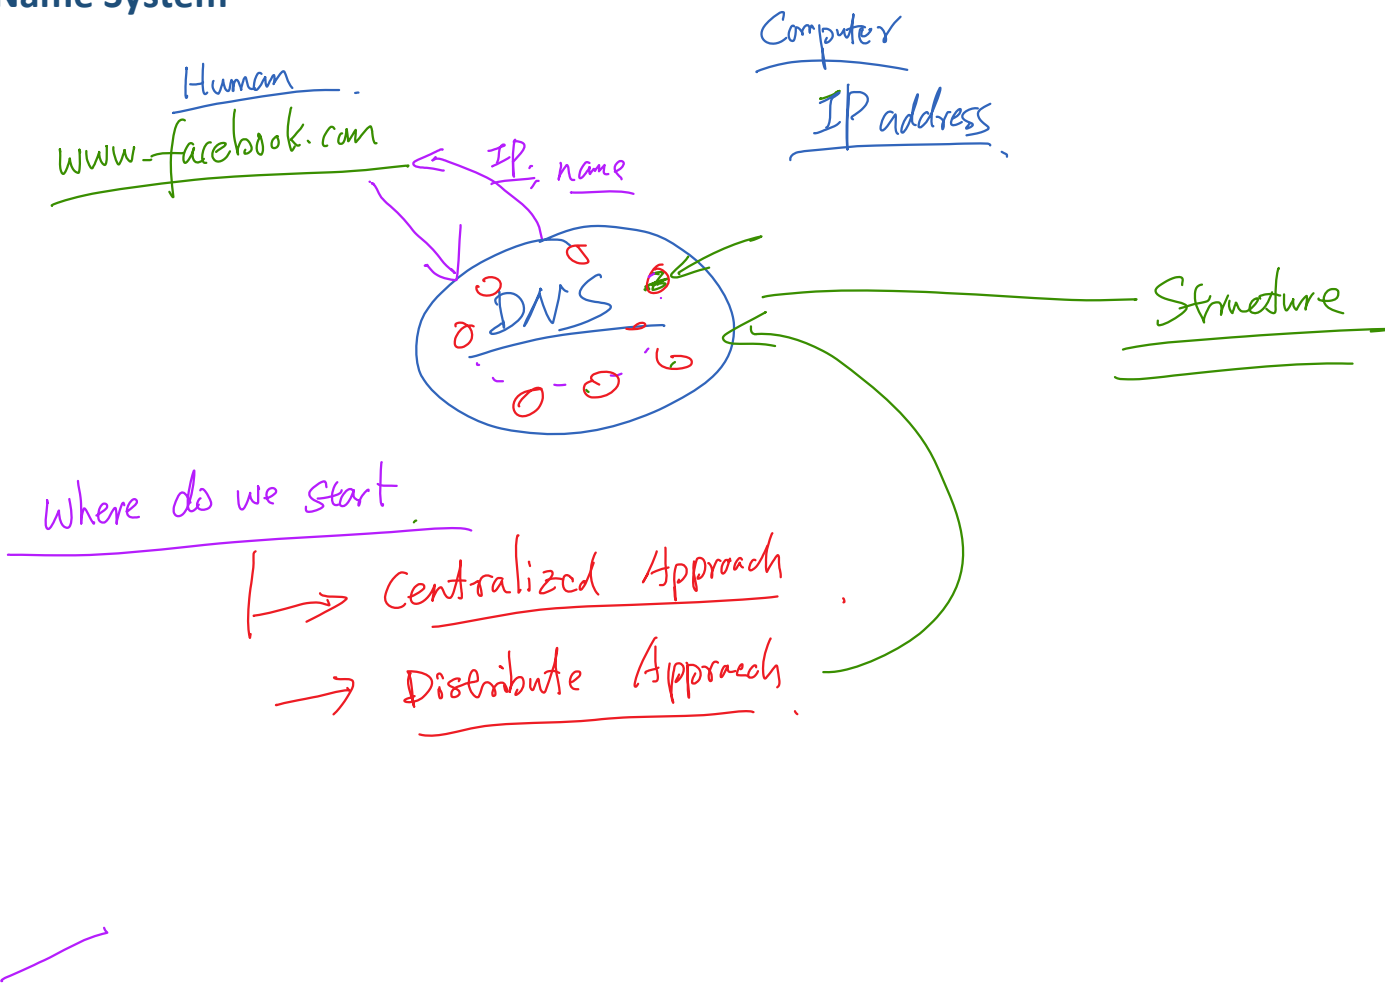 Name System
Human
www.facebook.com
Computer
IP address
IP, name
DNS
Structure
Where do we start
Centralized Approach
Distribute Approach